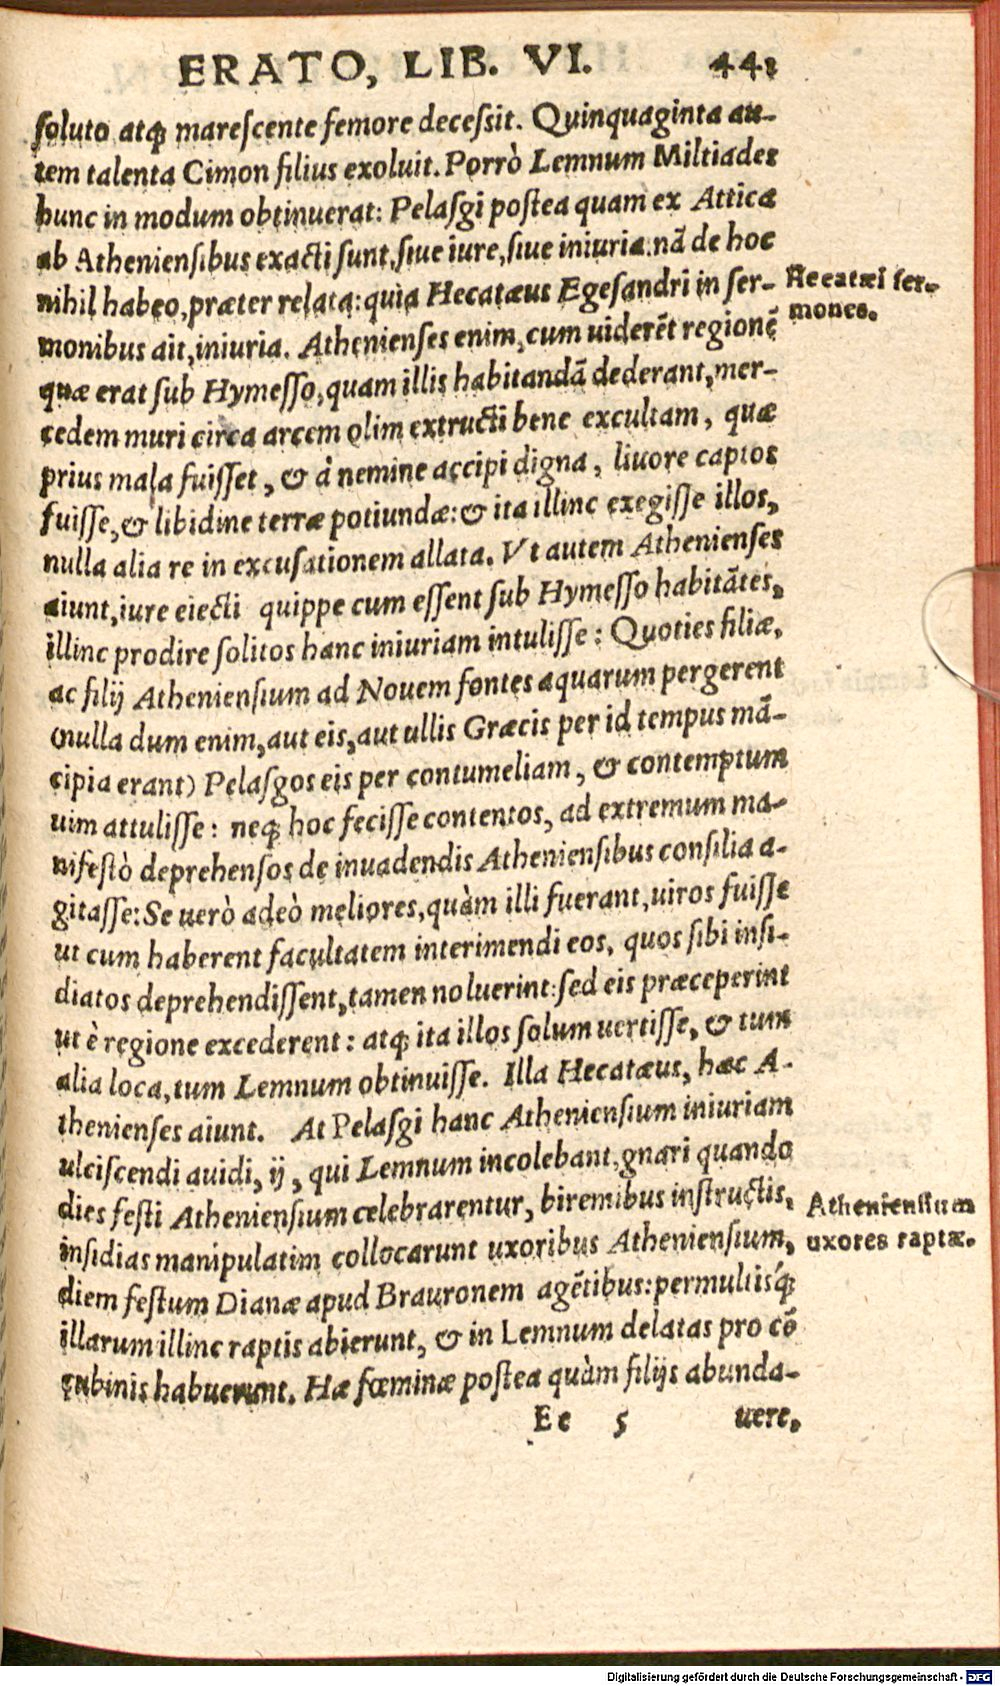 ERATO, LIB. VI. 441
soluto atq; marescente femore decessit. Quinquaginta au-
tem talenta Cimon filius exoluit. Porrò Lemnum Miltiades
hunc in modum obtinuerat: Pelasgi postea quam ex Attica
ab Atheniensibus exacti sunt, siue iure, siue iniuria: nã de hoc
nihil habeo, præter relata: quia Hecatæus Egesandri in ser-
Hecatæi ser-
monibus ait, iniuria. Athenienses enim, cum uiderẽt regionẽ
mones.
quæ erat sub Hymesso, quam illis habitandã dederant, mer-
cedem muri circa arcem olim extructi bene excultam, quæ
prius mala fuisset, & à nemine accipi digna, liuore captos
fuisse, & libidine terræ potiundæ: & ita illinc exegisse illos,
nulla alia re in excusationem allata. Vt autem Athenienses
aiunt, iure eiecti quippe cum essent sub Hymesso habitãtes,
illinc prodire solitos hanc iniuriam intulisse: Quoties filiæ,
ac filij Atheniensium ad Nouem fontes aquarum pergerent
(nulla dum enim, aut eis, aut ullis Græcis per id tempus mã-
cipia erant) Pelasgos eis per contumeliam, & contemptum
uim attulisse: neq; hoc fecisse contentos, ad extremum ma-
nifestò deprehensos de inuadendis Atheniensibus consilia a-
gitasse: Se uerò adeò meliores, quàm illi fuerant, uiros fuisse
ut cum haberent facultatem interimendi eos, quos sibi insi-
diatos deprehendissent, tamen noluerint: sed eis præceperint
ut è regione excederent: atq; ita illos solum uertisse, & tum
alia loca, tum Lemnum obtinuisse. Illa Hecatæus, hæc A-
thenienses aiunt. At Pelasgi hanc Atheniensium iniuriam
ulciscendi auidi, ij, qui Lemnum incolebant, gnari quando
dies festi Atheniensium celebrarentur, biremibus instructis,
Atheniensium
insidias manipulatim collocarunt uxoribus Atheniensium,
uxores raptæ.
diem festum Dianæ apud Brauronem agẽtibus: permultisq́;
illarum illinc raptis abierunt, & in Lemnum delatas pro cõ
cubinis habuerunt. Hæ fœminæ postea quàm filijs abunda-
Ee 5 uere,
Digitalisierung gefördert durch die Deutsche Forschungsgemeinschaft - DFG